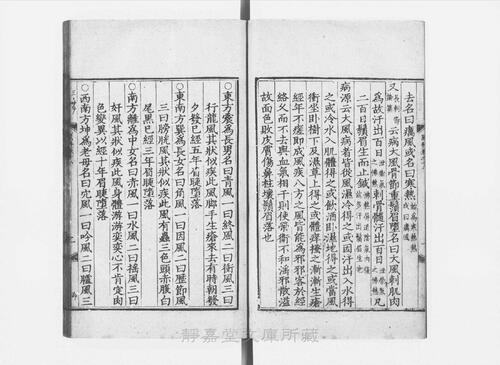 去名曰癘風或名曰寒熱
云病大風骨節重鬚眉墮名曰大風刺肌肉
為故汗出百日刺骨髓汗出百日凡
二百日鬚眉生而止鍼
病源云大風病者皆從風濕冷得之或因汗出入水得
之或冷水入肌體得之或飲酒臥濕地得之或當風
衝坐卧樹下及濕草上得之或體痒搔之漸漸生瘡
經年不瘥即成風疾八方之風皆能為邪邪客於經
絡久而不去與血氣相干則使榮衛不和淫邪散溢
故面色敗皮膚傷鼻柱壞鬚眉落也
○東方震為長男名曰青風一曰終風二曰衝風三曰
行龍風其狀似疾此風脚手生瘡來去有時朝發
夕發已經五年眉睫墮落
○東南方巽為長女名曰角風一曰因風二曰歷節風
三曰膀胱風其狀似疾此風有蟲三色頭赤腹白
尾黑已經三年眉睫墮落
○南方離為中女名曰赤風一曰水風二曰搖風三曰
奸風其狀似疾此風身體游游奕奕心不肯定肉
色變異以經十年眉睫墮落
○西南方坤為老母名曰風一曰吟風二曰臚風三
靜嘉堂文庫所藏